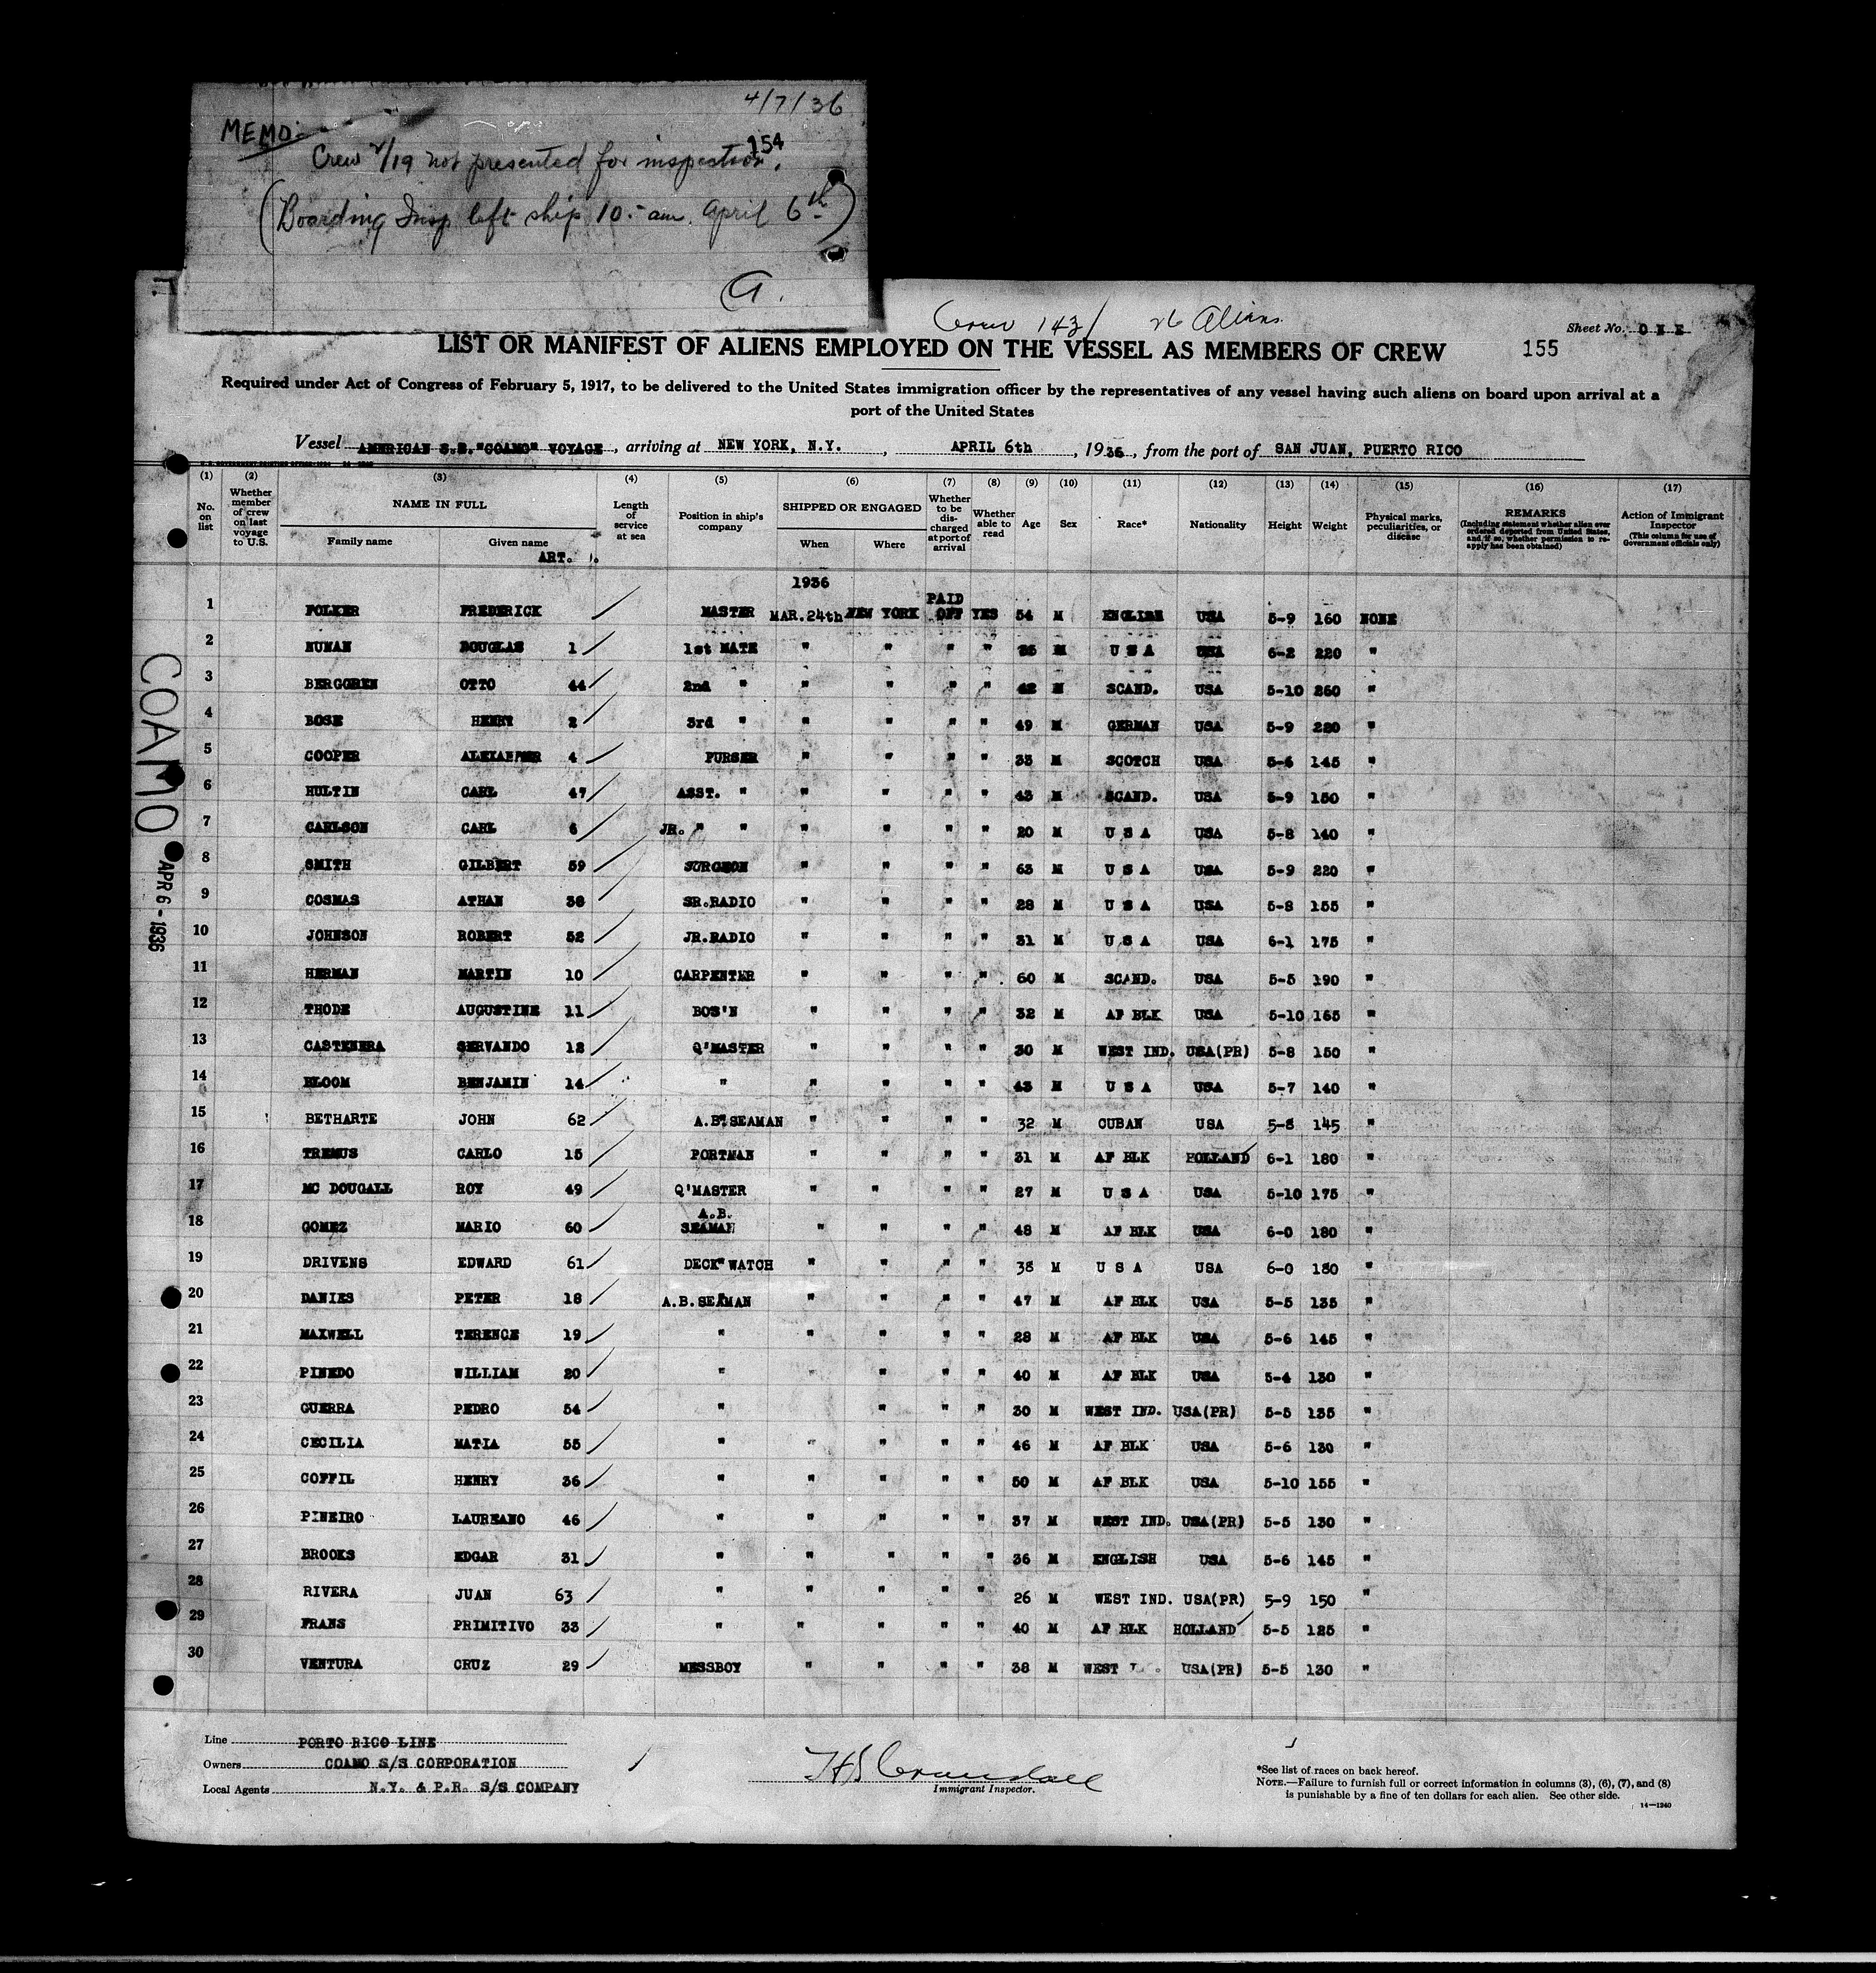 4/7/36
MEMO:-
154
Crew 2/19 not presented for inspection.
(Boarding Insp left ship 10:- am. April 6th)
a.
Crew 143/ 26 Aliens.
Sheet No. ONE
LIST OR MANIFEST OF ALIENS EMPLOYED ON THE VESSEL AS MEMBERS OF CREW 155
Required under Act of Congress of February 5, 1917, to be delivered to the United States immigration officer by the representatives of any vessel having such aliens on board upon arrival at a
port of the United States
Vessel AMERICAN S.S."COAMO" VOYAGE, arriving at NEW YORK, N.Y., APRIL 6th, 1936, from the port of SAN JUAN, PUERTO RICO
(1) No. on list (2) Whether member of crew on last voyage to U.S. (3) NAME IN FULL Family name Given name (4) Length of service at sea (5) Position in ship's company (6) SHIPPED OR ENGAGED When Where (7) Whether to be discharged at port of arrival (8) Whether able to read (9) Age (10) Sex (11) Race* (12) Nationality (13) Height (14) Weight (15) Physical marks, peculiarities, or disease (16) REMARKS (Including statement whether alien ever ordered deported from United States, and if so, whether permission to reapply has been obtained) (17) Action of Immigrant Inspector (This column for use of Government officials only)
ART.
1936
1 FOLKER FREDERICK MASTER MAR.24th NEW YORK PAID OFF YES 54 M ENGLISH USA 5-9 160 NONE
2 NUMAN DOUGLAS 1 1st MATE " " " " 35 M U S A USA 6-2 220 "
3 BERGGREN OTTO 44 2nd " " " " " 42 M SCAND. USA 5-10 260 "
4 BOSE HENRY 2 3rd " " " " " 49 M GERMAN USA 5-9 220 "
5 COOPER ALEXANDER 4 PURSER " " " " 33 M SCOTCH USA 5-6 145 "
6 HULTIN CARL 47 ASST. " " " " " 43 M SCAND. USA 5-9 150 "
7 CARLSON CARL 6 JR. " " " " " " 20 M U S A USA 5-8 140 "
8 SMITH GILBERT 59 SURGEON " " " " 63 M U S A USA 5-9 220 "
9 COSMAS ATHAN 38 SR.RADIO " " " " 28 M U S A USA 5-8 155 "
10 JOHNSON ROBERT 52 JR.RADIO " " " " 31 M U S A USA 6-1 175 "
11 HERMAN MARTIN 10 CARPENTER " " " " 60 M SCAND. USA 5-5 190 "
12 THODE AUGUSTINE 11 BOS'N " " " " 32 M AF BLK USA 5-10 165 "
13 CASTENERA SERVANDO 12 Q'MASTER " " " " 30 M WEST IND. USA(PR) 5-8 150 "
14 BLOOM BENJAMIN 14 " " " " " 43 M U S A USA 5-7 140 "
15 BETHARTE JOHN 62 A.B. SEAMAN " " " " 32 M CUBAN USA 5-8 145 "
16 TREMUS CARLO 15 PORTMAN " " " " 31 M AF BLK HOLLAND 6-1 180 "
17 MC DOUGALL ROY 49 Q'MASTER " " " " 27 M U S A USA 5-10 175 "
18 GOMEZ MARIO 60 A.B. SEAMAN " " " " 48 M AF BLK USA 6-0 180 "
19 DRIVENS EDWARD 61 DECK WATCH " " " " 38 M U S A USA 6-0 180 "
20 DANIES PETER 18 A.B.SEAMAN " " " " 47 M AF BLK USA 5-5 135 "
21 MAXWELL TERENCE 19 " " " " " 28 M AF BLK USA 5-6 145 "
22 PINEDO WILLIAM 20 " " " " " 40 M AF BLK USA 5-4 130 "
23 GUERRA PEDRO 54 " " " " " 30 M WEST IND. USA(PR) 5-5 135 "
24 CECILIA MATIA 55 " " " " " 46 M AF BLK USA 5-6 130 "
25 COFFIL HENRY 36 " " " " " 50 M AF BLK USA 5-10 155 "
26 PINEIRO LAUREANO 46 " " " " " 37 M WEST IND. USA(PR) 5-5 130 "
27 BROOKS EDGAR 31 " " " " " 36 M ENGLISH USA 5-6 145 "
28 RIVERA JUAN 63 " " " " " 26 M WEST IND. USA(PR) 5-9 150 "
29 FRANS PRIMITIVO 33 " " " " " 40 M AF BLK HOLLAND 5-5 125 "
30 VENTURA CRUZ 29 MESSBOY " " " " 38 M WEST USA(PR) 5-5 130 "
COAMO
APR 6 - 1936
Line PORTO RICO LINE
Owners COAMO S/S CORPORATION
Local Agents N.Y. & P.R. S/S COMPANY
Immigrant Inspector.
*See list of races on back hereof.
NOTE.—Failure to furnish full or correct information in columns (3), (6), (7), and (8)
is punishable by a fine of ten dollars for each alien. See other side.
14—1240